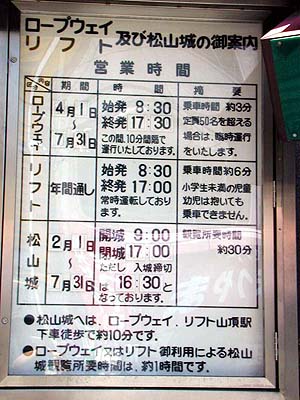 ロープウェイ
リフト
及び松山城の御案内
営業時間
区分 期間 時間 摘要
ロープウェイ
4月1日
〜
7月31日
始発 8:30
終発 17:30
この間、10分間隔で
運行いたしております。
乗車時間 約3分
定員50名を超える
場合は、臨時運行
をいたします。
リフト
年間通し
始発 8:30
終発 17:00
常時運転しており
ます。
乗車時間約6分
小学生未満の児童
幼児は抱いても
乗車できません。
松山城
2月1日
〜
7月31日
開城 9:00
閉城 17:00
ただし 入城締切
は 16:30 と
なっております。
観覧所要時間
約30分
●松山城へは、ロープウェイ、リフト山頂駅
下車徒歩で約10分です。
●ロープウェイ又はリフト御利用による松山
城観覧所要時間は、約1時間です。